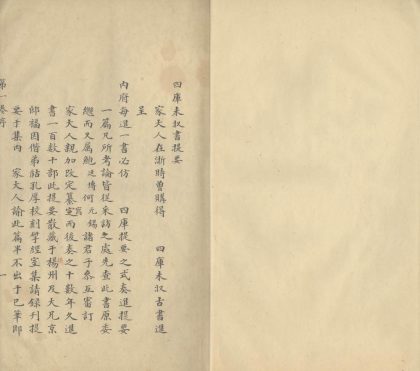 四庫未收書提要
家大人在浙時曾購得 四庫未收古書進
呈
內府每進一書必仿 四庫提要之式奏進提要
一篇凡所考論皆從采訪之處先查此書原委
繼而又屬鮑廷博何元錫諸君子參互審訂
家大人親加改定纂寫而後奏之十數年久進
書一百數十部此提要散藏于揚州及大兄京
邸福因偕弟祜孔厚校刻揅經室集請錄刊提
要于集內 家大人諭此篇半不出于己筆即
第一卷序
一